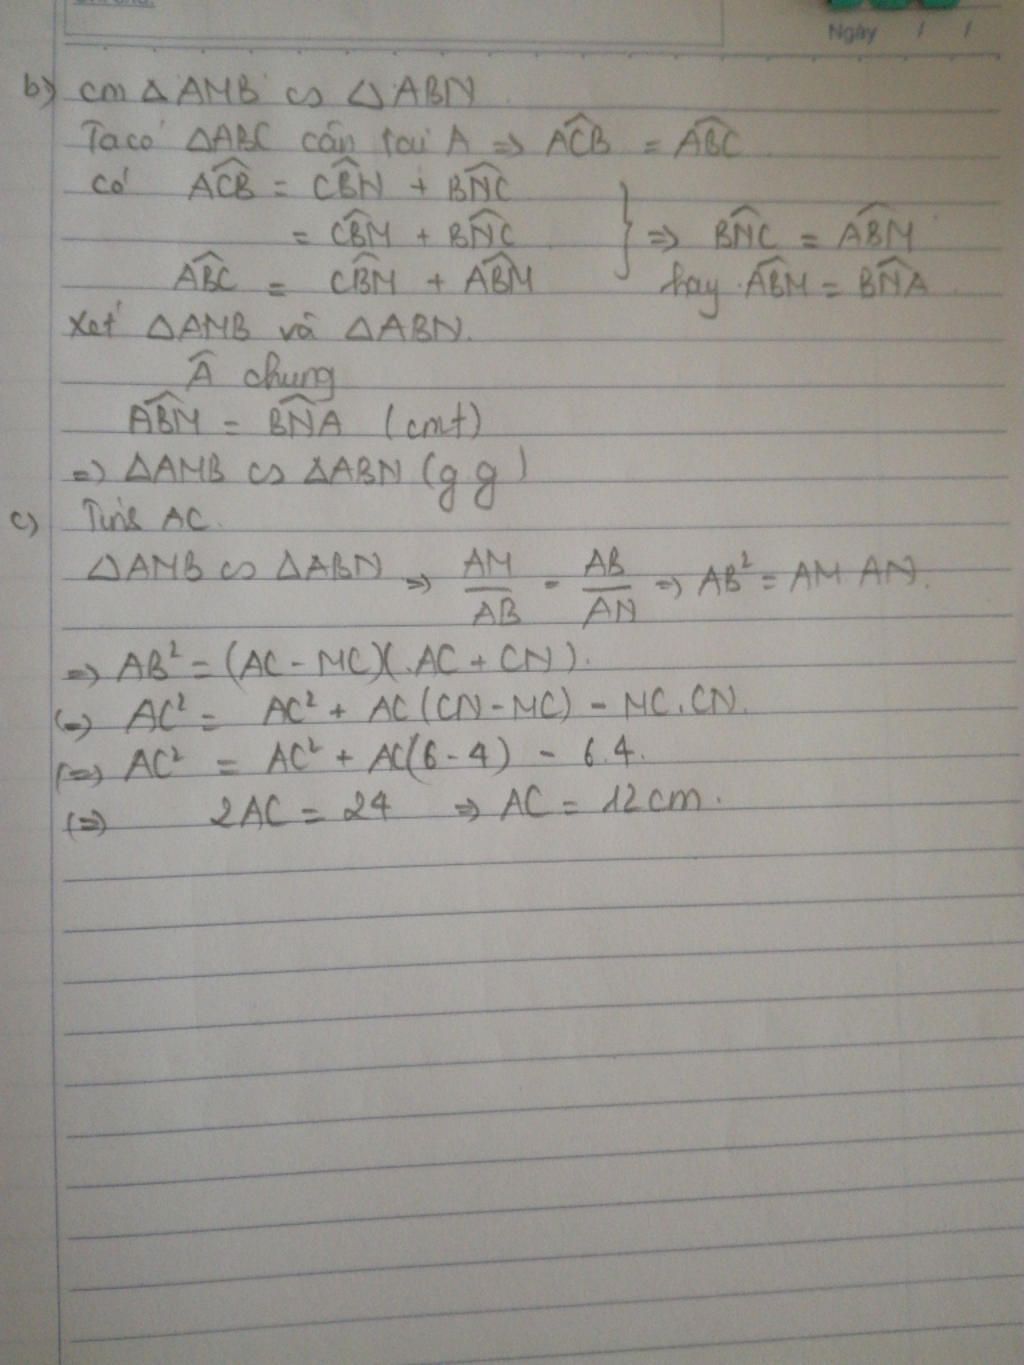 Ngày / /
b) cm △AMB ∽ △ABN
Ta có △ABC cân tại A => ACB^ = ABC^
có ACB^ = CBN^ + BNC^
= CBM^ + BNC^ } => BNC^ = ABM^
ABC^ = CBM^ + ABM^ hay ABM^ = BNA^
Xét △AMB và △ABN.
A^ chung
ABM^ = BNA^ (cmt)
=> △AMB ∽ △ABN (g g)
c) Tính AC.
△AMB ∽ △ABN => AM/AB = AB/AN => AB² = AM AN.
=> AB² = (AC - MC)(AC + CN).
(=) AC² = AC² + AC(CN - MC) - MC.CN.
(=> AC² = AC² + AC(6 - 4) - 6.4.
(=) 2AC = 24 => AC = 12cm.